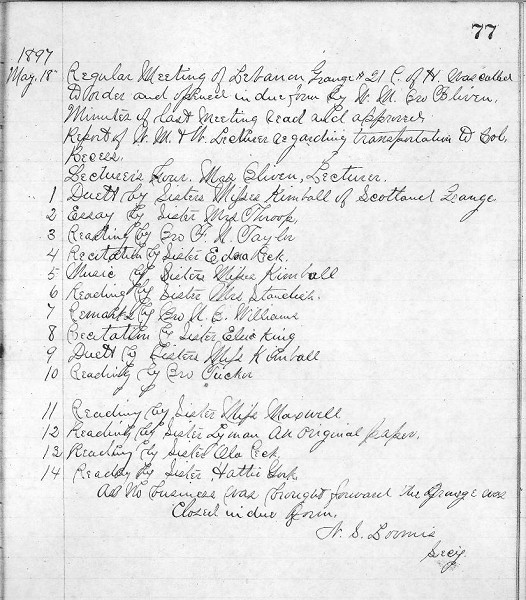 77
1897
May. 18" Regular Meeting of Lebanon Grange # 21 P. of H. was called
to order and opened in due form by W. M. Bro Bliven.
Minutes of last Meeting Read and approved
Report of W. M. & W. Lecturer regarding transportation to Col,
Recess.
Lecturers Hour. Mrs Bliven, Lecturer.
1 Duett by Sisters Misses Kimball of Scotland Grange
2 Essay by Sister Mrs Throop,
3 Reading by Bro F. N. Taylor
4 Recitation by Sister Edna Peck.
5 Music by Sisters Misses Kimball
6 Reading by Sister Mrs Standish.
7 Remarks by Bro N. B. Williams
8 Recitation by Sister Elsie King
9 Duett by Sisters Miss Kimball
10 Reading by Bro Tucker
11 Reading by Sister Miss Maxwell
12 Reading by Sister Lyman An original paper.
13 Reading by Sister Ola Peck,
14 Reading by Sister Hattie York
As No business was brought forward the Grange was
Closed in due form.
N. S. Loomis
Secy.